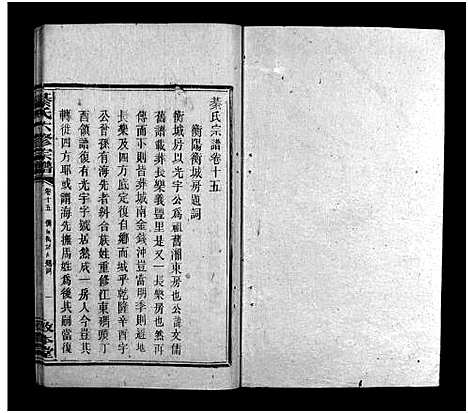 綦氏宗譜卷十五
衡陽衡城房題詞
衡城房以光宇公為祖舊湘東房也公諱文備
舊譜載葬長樂義豐里是又一長樂房也然再
傳而下則皆葬城南金錢沖豈當明季則避地
長樂及四方底定復自鄉而城乎乾隆辛酉字
公晉孫有海先者糾合族姓重修江東碉頭丁
酉領譜復有光宇字號居然成一房人今豈其
轉徙四方耶或謂海先撫周姓為後其嗣當復
綦氏六修宗譜
卷十五
衡陽衡城房題詞
一
敦本堂